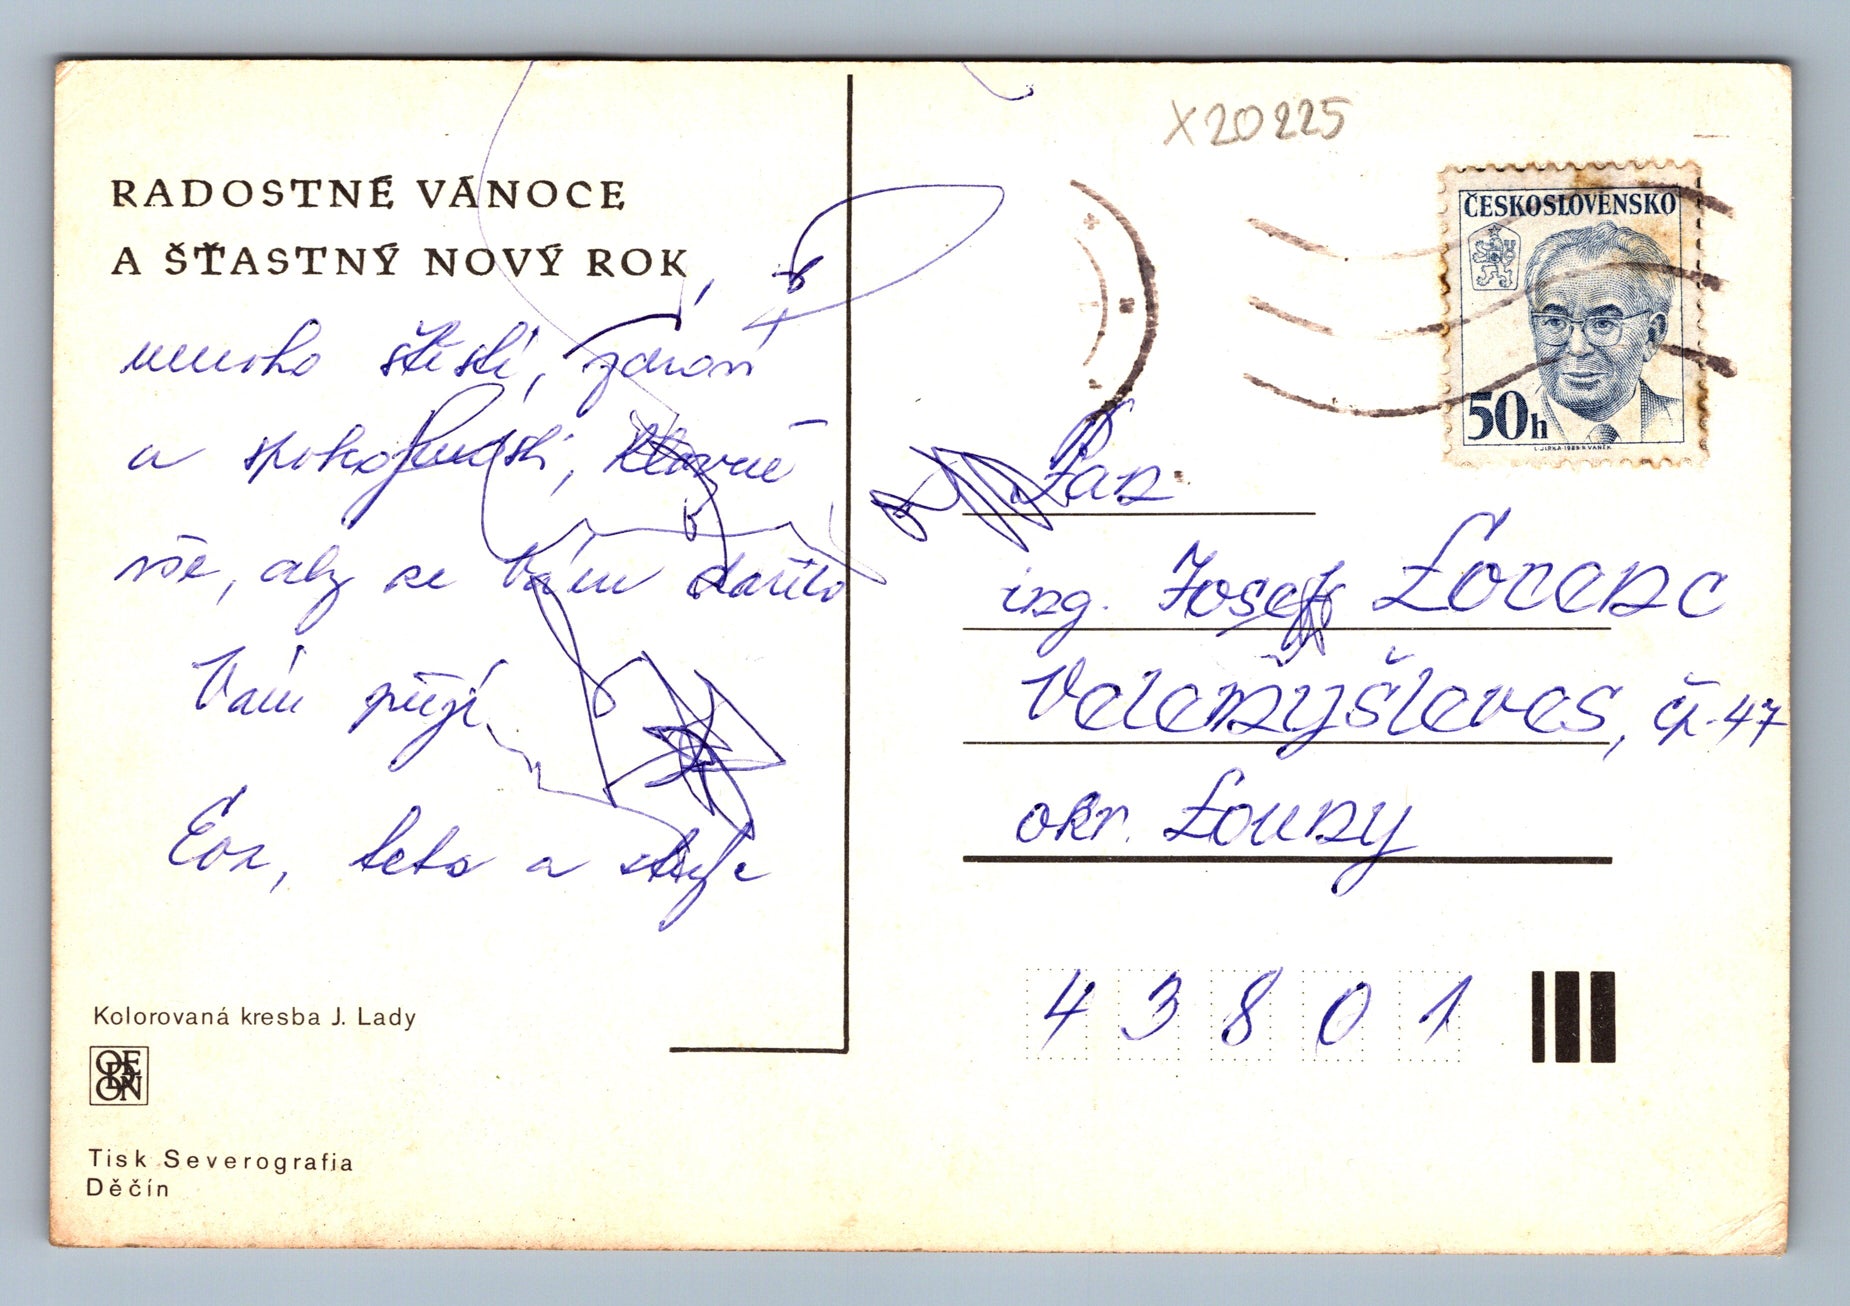 X20225
RADOSTNÉ VÁNOCE
A ŠŤASTNÝ NOVÝ ROK,
mnoho štěstí, zdraví
a spokojenosti, hlavně
vše, aby se Vám dařilo
Vám přejí
Eva, teta a strýc
Kolorovaná kresba J. Lady
ODEON
Tisk Severografia
Děčín
ČESKOSLOVENSKO
50h
Pan
ing. Josef Lorenc
Velemyšleves, čp. 47
okr. Louny
43801